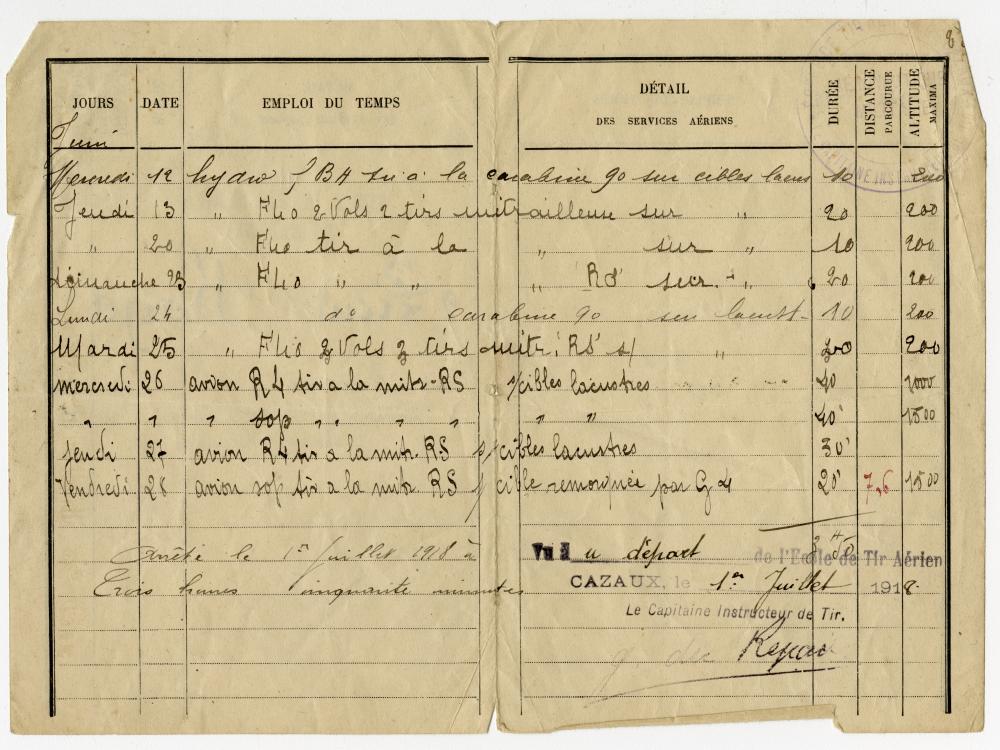 JOURS DATE EMPLOI DU TEMPS DÉTAIL DES SERVICES AÉRIENS DURÉE DISTANCE PARCOURUE ALTITUDE MAXIMA
Juin
Mercredi 12 hydro FBA tir à la carabine 90 sur cibles lacus 10 200
Jeudi 13 " F40 2 Vols 2 tirs mitrailleuse sur " 20 200
" 20 " F40 tir à la " sur " 10 200
Dimanche 23 " F40 " " " RS sur " 20 200
Lundi 24 d° carabine 90 sur lacust. 10 200
Mardi 25 " F40 2 Vols 2 tirs mitr. RS s/ " 20 200
mercredi 26 avion R4 tir a la mitr. RS s/cibles lacustres 40 1000
" " " sop " " " " " " 40' 1500
jeudi 27 avion R4 tir a la mitr. RS s/cibles lacustres 30'
Vendredi 28 avion sop tir a la mitr RS s/ cible remorquée par G4 20' 7,6 1500
3 H 50
Arrêté le 1er Juillet 1918 à
Trois heures cinquante minutes
Vu à u départ de l'Ecole de Tir Aérien
CAZAUX, le 1er Juillet 1918.
Le Capitaine Instructeur de Tir.